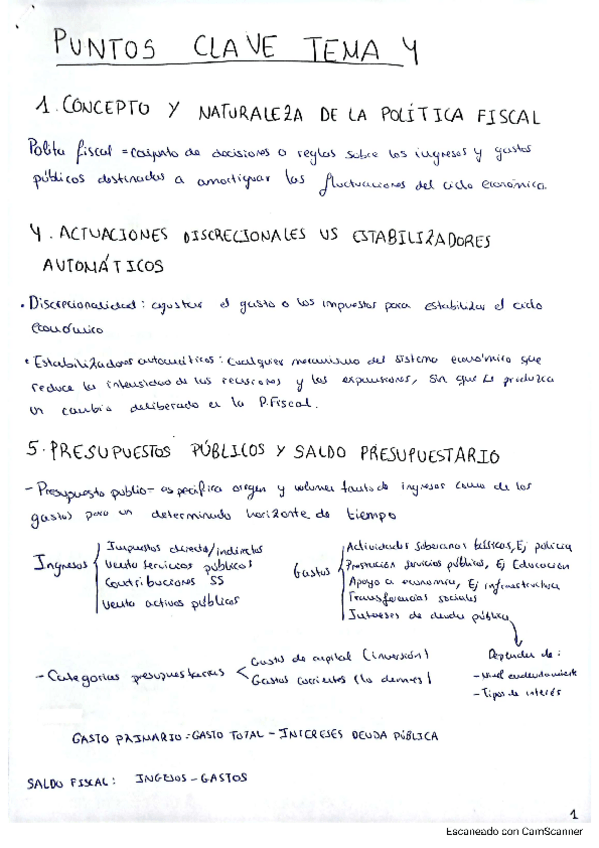 PUNTOS CLAVE TEMA 4
1. CONCEPTO Y NATURALEZA DE LA POLÍTICA FISCAL
Polita fiscal = conjunto de decisiones o reglas sobre los ingresos y gastos
públicos destinados a amortiguar las fluctuaciones del ciclo económico.
4. ACTUACIONES DISCRECIONALES VS ESTABILIZADORES
AUTOMÁTICOS
• Discrecionalidad: ajustar el gasto o los impuestos para estabilizar el ciclo
económico
• Estabilizadores automáticos: Cualquier mecanismo del sistema económico que
reduce la intensidad de las recesiones y las expansiones, sin que se produzca
un cambio deliberado en la P.Fiscal.
5. PRESUPUESTOS PÚBLICOS Y SALDO PRESUPUESTARIO
- Presupuesto publio - especifica origen y volumen tanto de ingresos como de los
gastos para un determinado horizonte de tiempo
Ingresos
Impuestos directo/indirectos
Venta servicios públicos
Contribuciones SS
Venta activos públicos
Gastos
Actividades soberanas básicas, Ej policia
Promoción servicios públicos, Ej Educación
Apoyo a economía, Ej infraestructura
Transferencias sociales
Intereses de deuda pública
Depender de:
- Nivel endeudamiento
- Tipos de interés
- Categorias presupuestarias
Gastos de capital (inversión)
Gastos corrientes (lo demas)
GASTO PRIMARIO = GASTO TOTAL - INTERESES DEUDA PÚBLICA
SALDO FISCAL: INGESOS - GASTOS
1
Escaneado con CamScanner